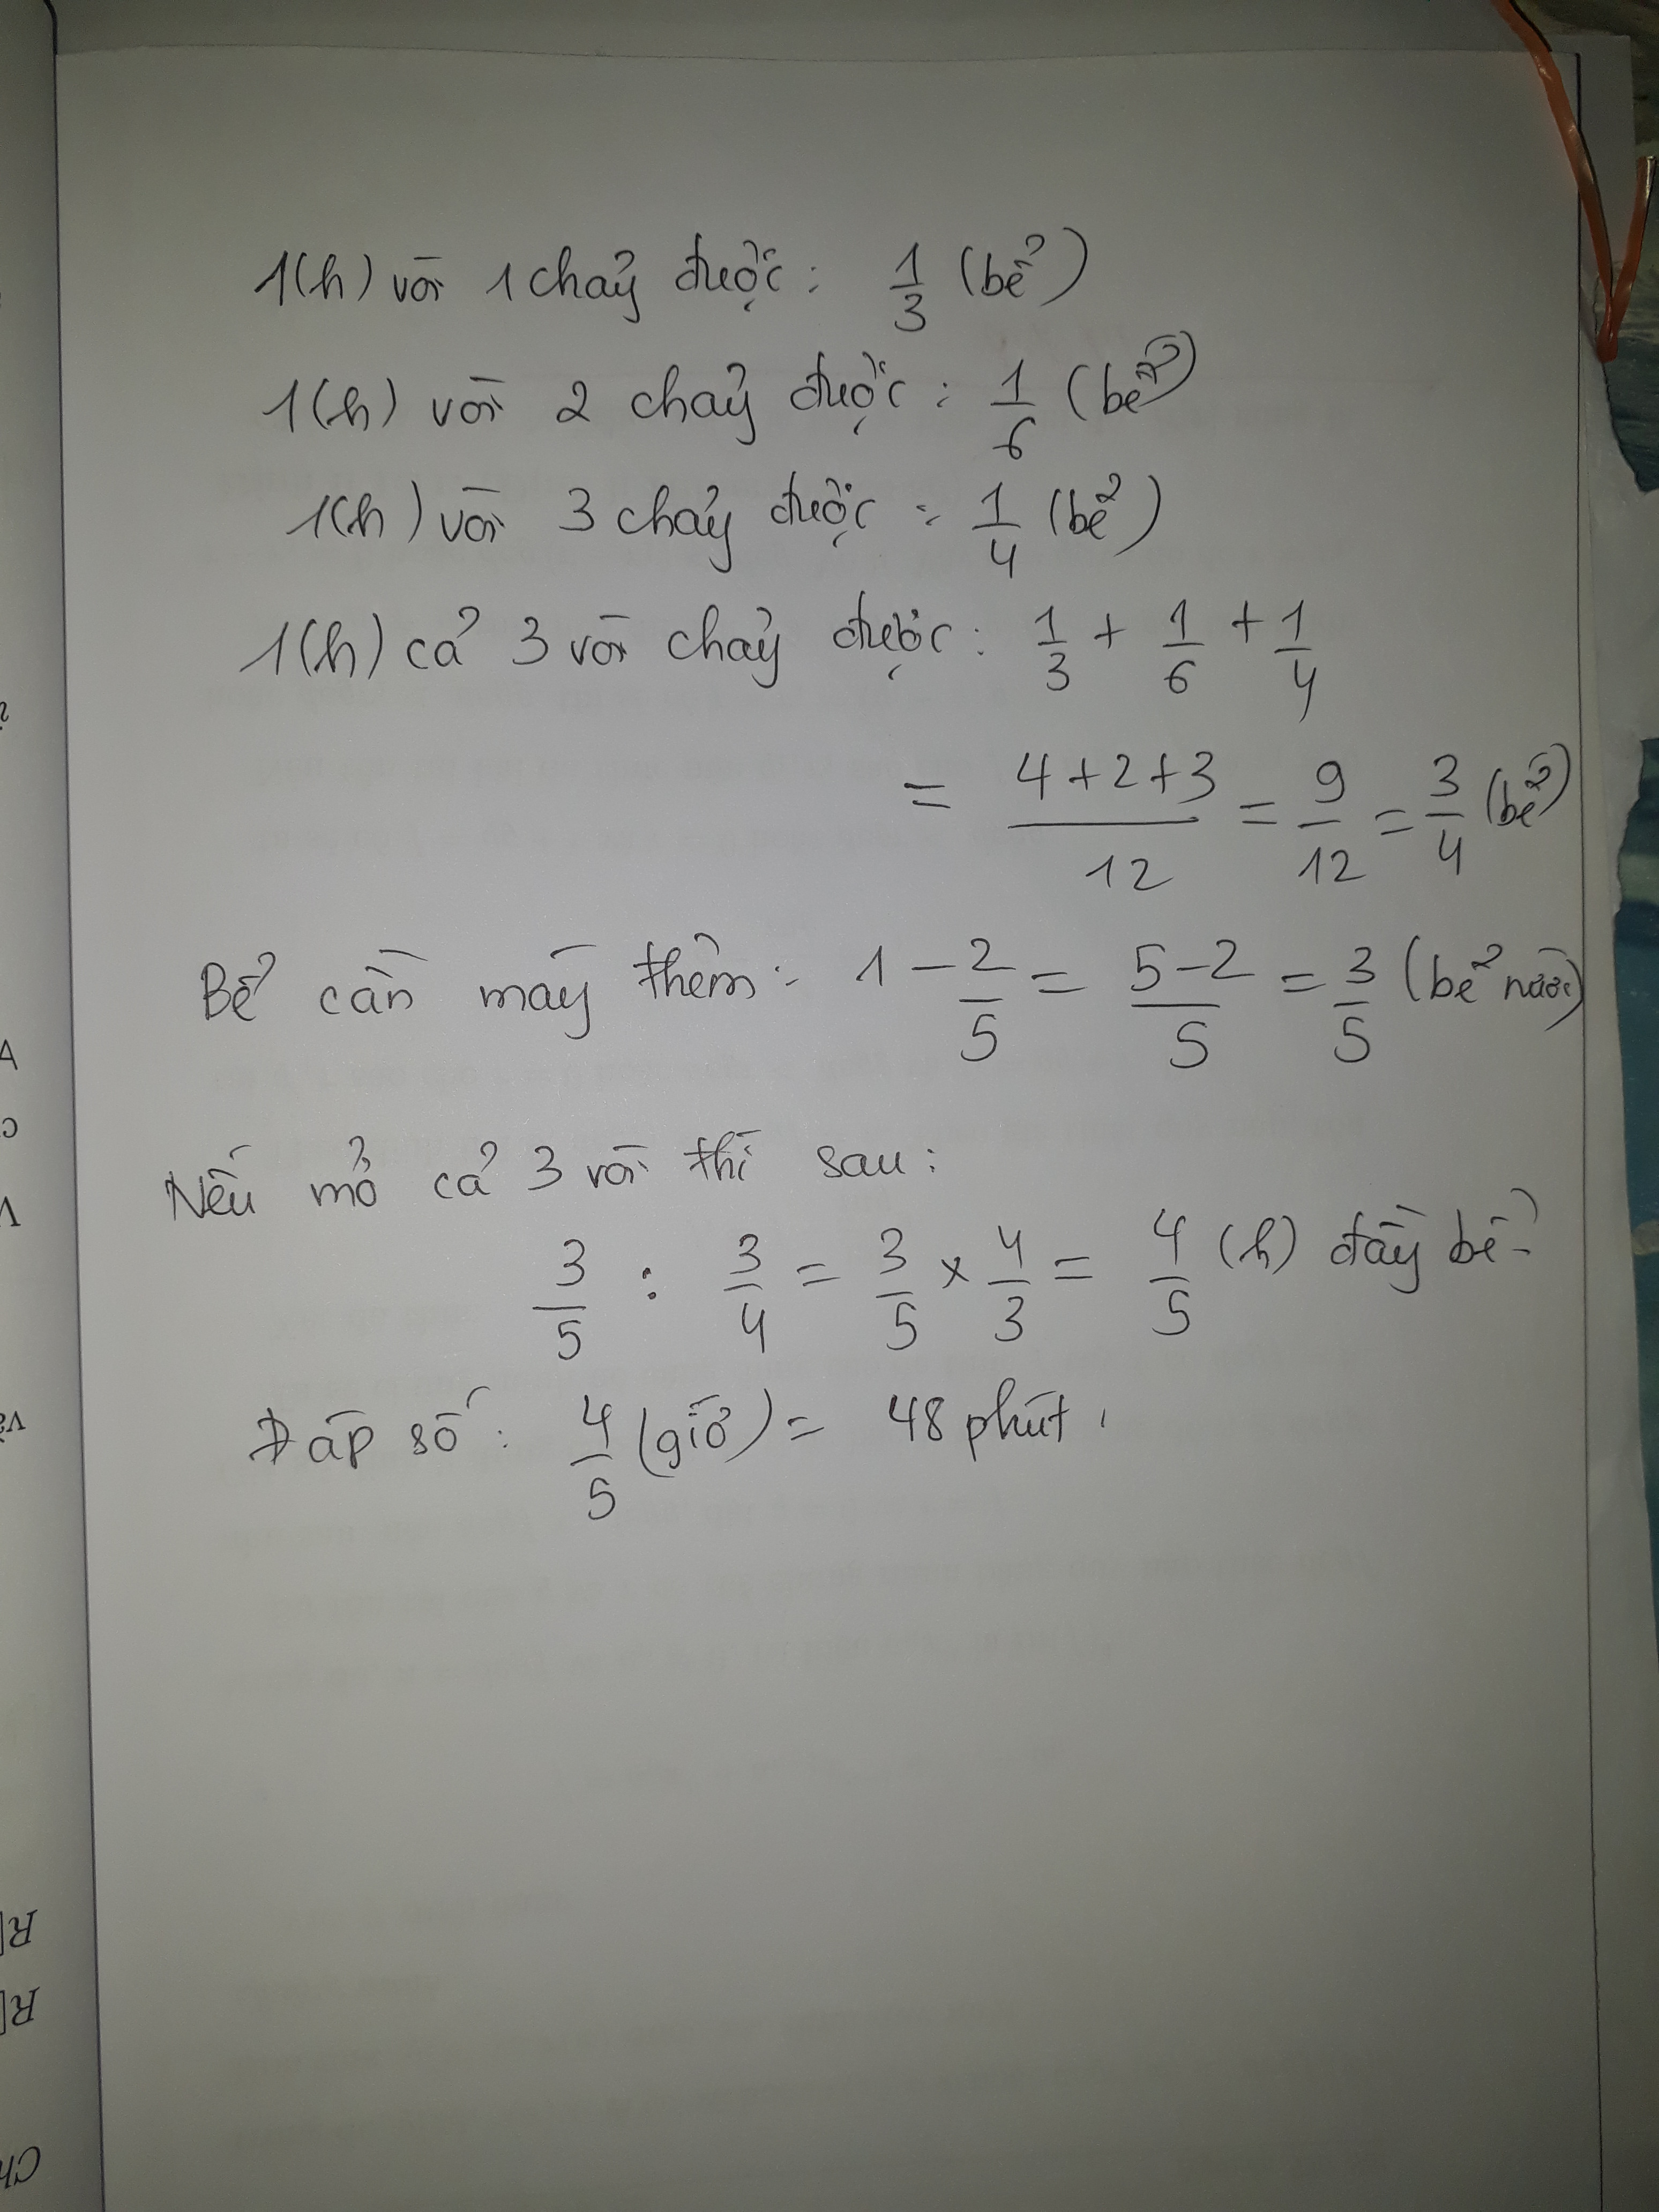 1(h) vòi 1 chảy được: 1/3 (bể)
1(h) vòi 2 chảy được: 1/6 (bể)
1(h) vòi 3 chảy được: 1/4 (bể)
1(h) cả 3 vòi chảy được: 1/3 + 1/6 + 1/4
= (4+2+3)/12 = 9/12 = 3/4 (bể)
Bể cần máy thêm: 1 - 2/5 = (5-2)/5 = 3/5 (bể nước)
Nếu mở cả 3 vòi thì sau:
3/5 : 3/4 = 3/5 × 4/3 = 4/5 (h) đầy bể
Đáp số: 4/5 (giờ) = 48 phút.